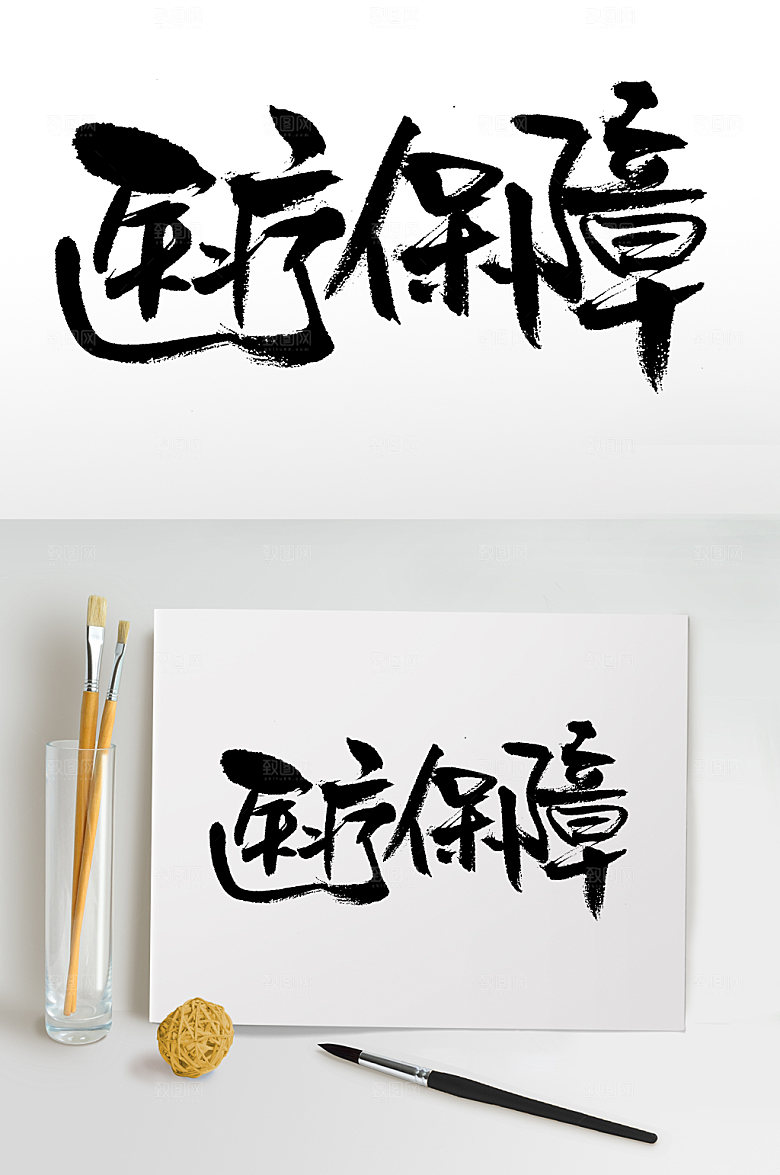 医疗保障
医疗保障